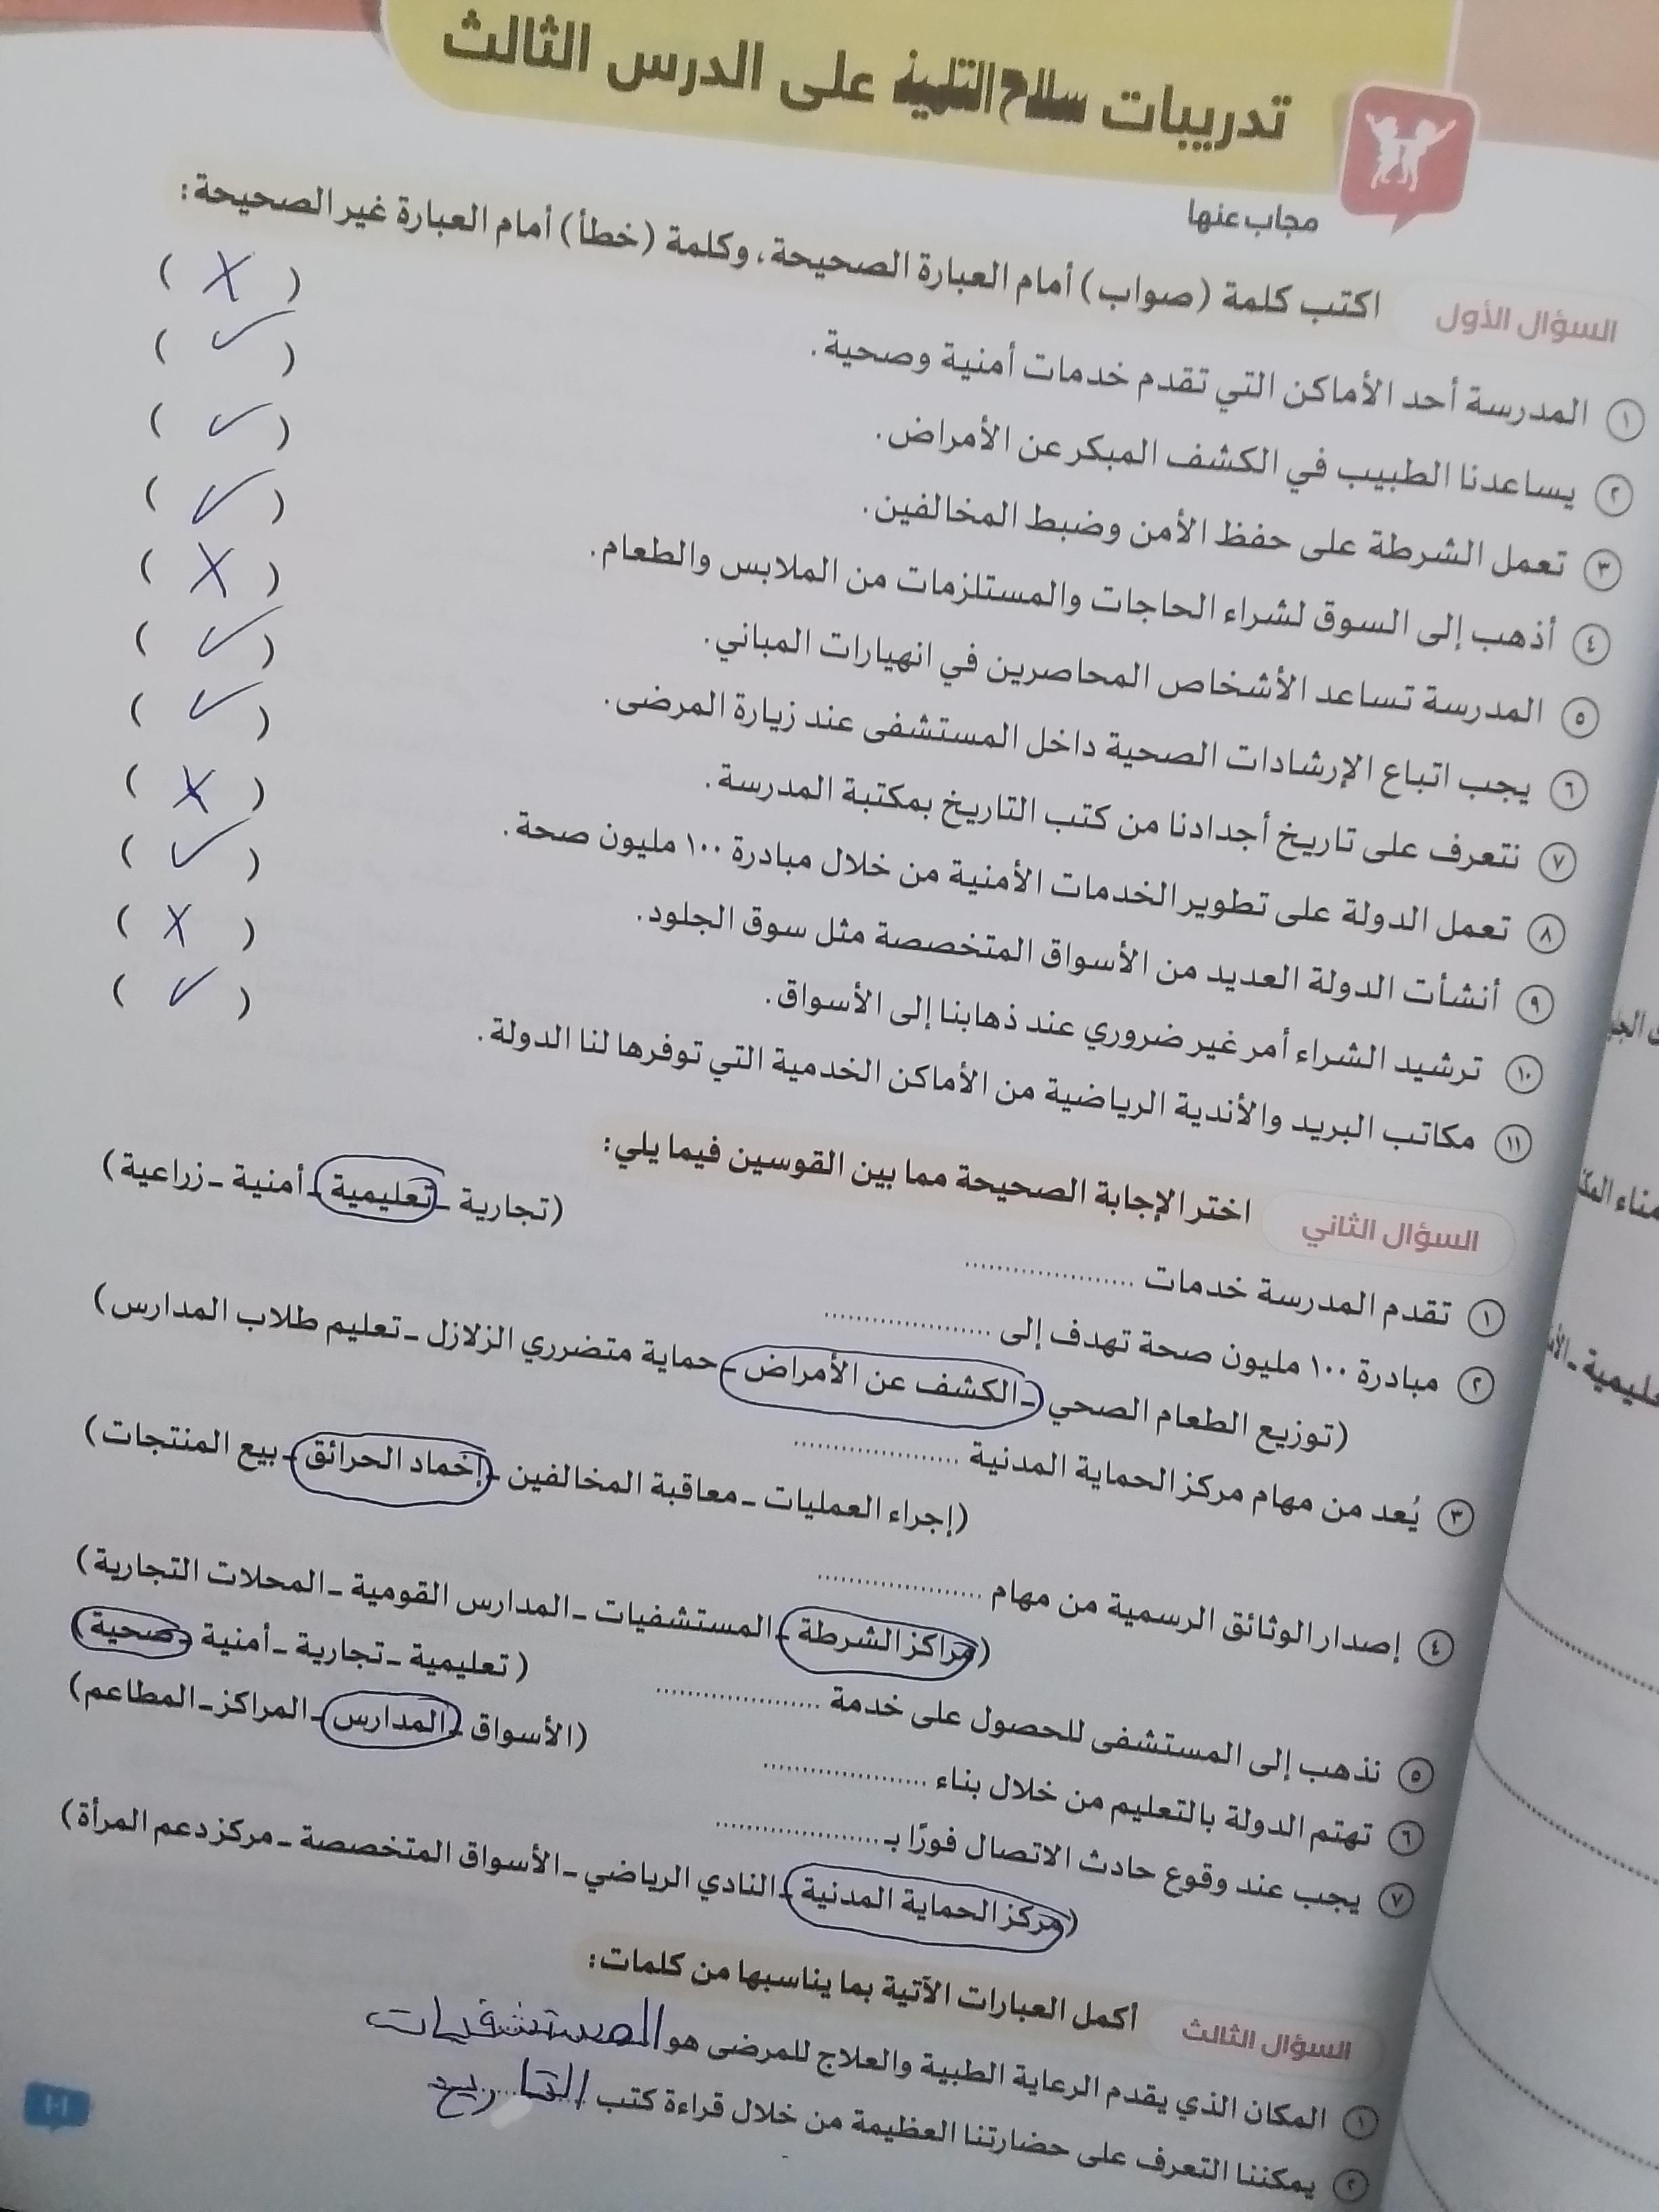 تدريبات سلاح التلميذ على الدرس الثالث
مجاب عنها
السؤال الأول اكتب كلمة (صواب) أمام العبارة الصحيحة، وكلمة (خطأ) أمام العبارة غير الصحيحة:
١ المدرسة أحد الأماكن التي تقدم خدمات أمنية وصحية. ( X )
٢ يساعدنا الطبيب في الكشف المبكر عن الأمراض. ( ✓ )
٣ تعمل الشرطة على حفظ الأمن وضبط المخالفين. ( ✓ )
٤ أذهب إلى السوق لشراء الحاجات والمستلزمات من الملابس والطعام. ( ✓ )
٥ المدرسة تساعد الأشخاص المحاصرين في انهيارات المباني. ( X )
٦ يجب اتباع الإرشادات الصحية داخل المستشفى عند زيارة المرضى. ( ✓ )
٧ نتعرف على تاريخ أجدادنا من كتب التاريخ بمكتبة المدرسة. ( ✓ )
٨ تعمل الدولة على تطوير الخدمات الأمنية من خلال مبادرة ١٠٠ مليون صحة. ( X )
٩ أنشأت الدولة العديد من الأسواق المتخصصة مثل سوق الجلود. ( ✓ )
١٠ ترشيد الشراء أمر غير ضروري عند ذهابنا إلى الأسواق. ( X )
١١ مكاتب البريد والأندية الرياضية من الأماكن الخدمية التي توفرها لنا الدولة. ( ✓ )
السؤال الثاني اختر الإجابة الصحيحة مما بين القوسين فيما يلي:
١ تقدم المدرسة خدمات .................... (تجارية ـ تعليمية ـ أمنية ـ زراعية)
٢ مبادرة ١٠٠ مليون صحة تهدف إلى ....................
(توزيع الطعام الصحي ـ الكشف عن الأمراض ـ حماية متضرري الزلازل ـ تعليم طلاب المدارس)
٣ يُعد من مهام مركز الحماية المدنية ....................
(إجراء العمليات ـ معاقبة المخالفين ـ إخماد الحرائق ـ بيع المنتجات)
٤ إصدار الوثائق الرسمية من مهام ....................
(مراكز الشرطة ـ المستشفيات ـ المدارس القومية ـ المحلات التجارية)
٥ نذهب إلى المستشفى للحصول على خدمة .................... (تعليمية ـ تجارية ـ أمنية ـ صحية)
٦ تهتم الدولة بالتعليم من خلال بناء .................... (الأسواق ـ المدارس ـ المراكز ـ المطاعم)
٧ يجب عند وقوع حادث الاتصال فورًا بـ ....................
(مركز الحماية المدنية ـ النادي الرياضي ـ الأسواق المتخصصة ـ مركز دعم المرأة)
السؤال الثالث أكمل العبارات الآتية بما يناسبها من كلمات:
١ المكان الذي يقدم الرعاية الطبية والعلاج للمرضى هو المستشفيات
٢ يمكننا التعرف على حضارتنا العظيمة من خلال قراءة كتب التاريخ
١٠١